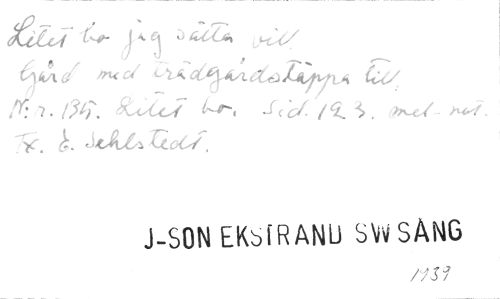 Litet bo jag sätta vill.
Gård med trädgårdstäppa till.
N:r. 135. Litet bo. Sid. 123. mel. not.
Tx. E. Sehlstedt.
J-SON EKSTRAND SWSÅNG
1939